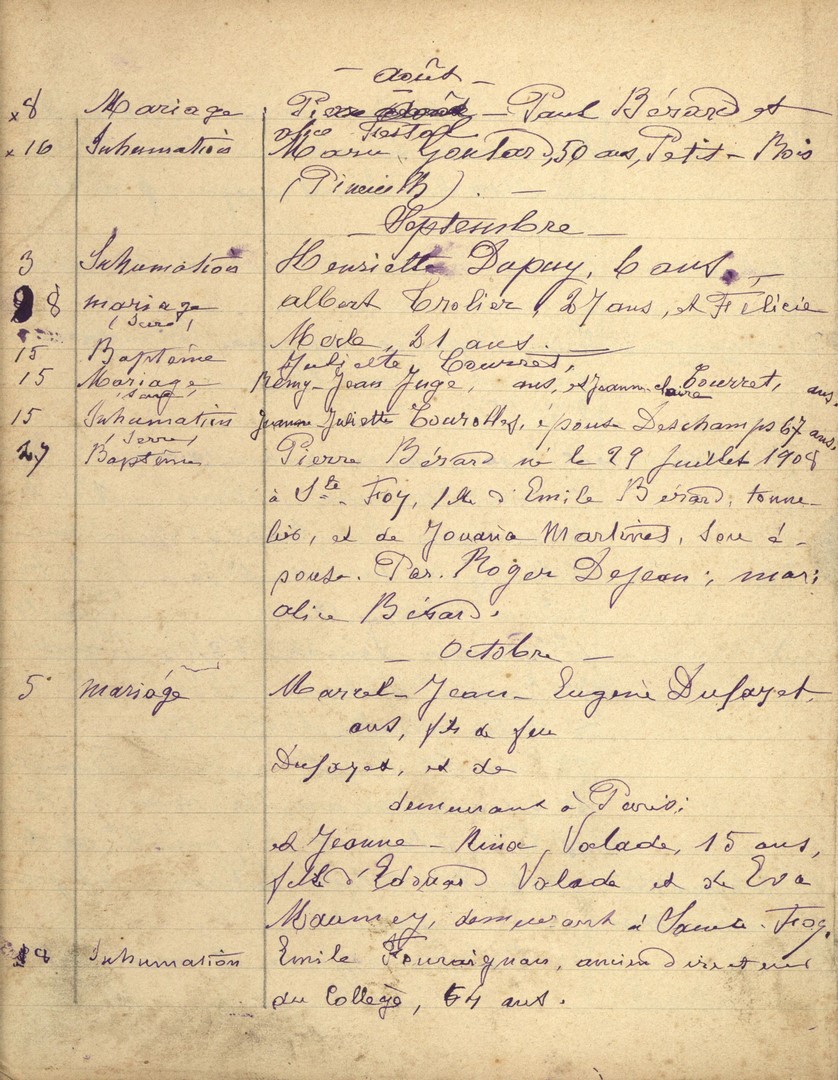 — août —
x 8 Mariage Paul Bérard et
alice Testal
x 10 Inhumation Marie Goulard, 50 ans, Petit-Bois
(Pineuilh). —
Septembre —
3 Inhumation Henriette Dupuy, 6 ans.
8 mariage albert Trolier, 27 ans, et Félicie
Mode, 21 ans.
15 Baptême Juliette Tourret,
15 Mariage Rémy-Jean Juge, ans, et Jeanne-claire Tourret, ans.
15 Inhumation Jeanne Juliette épouse Deschamps 67 ans.
(Serre)
27 Baptême Pierre Bérard né le 29 Juillet 1908
à Ste-Foy, fils d'Emile Bérard, tonne-
lier, et de Jouana Martines, son é-
pouse. Par. Roger Dejean; mar:
alice Bérard.
— Octobre —
5 mariage Marcel-Jean-Eugène Dufazet,
ans, fils de feu
Dufazet, et de
demeurant à Paris;
et Jeanne-Nina Valade, 15 ans,
fille d'Edouard Valade et de Eva
Maumey, demeurant à Sainte-Foy.
18 Inhumation Emile Fouraignan, ancien directeur
du Collège, 64 ans.